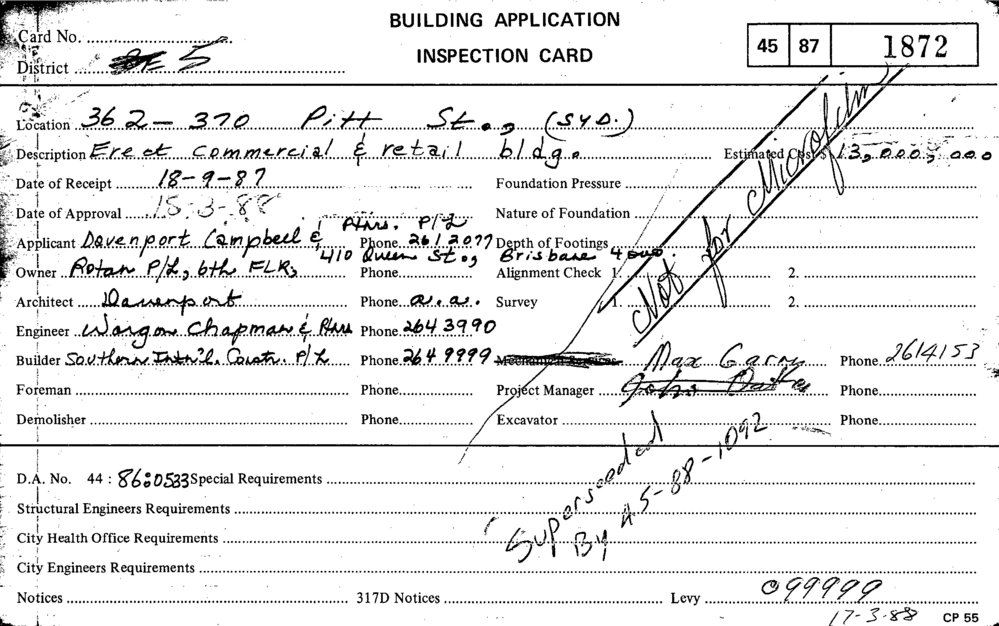 BUILDING APPLICATION
INSPECTION CARD
Card No.
District 5
45 87 1872
Location 362-370 Pitt St., (SYD.)
Description Erect commercial & retail bldg. Estimated Cost $ 13,000,000
Date of Receipt 18-9-87 Foundation Pressure
Date of Approval 15-3-88 Nature of Foundation
Applicant Davenport Campbell & Ptnrs. P/L Phone 2612077 Depth of Footings
Owner Rotan P/L, 6th FLR, 410 Queen St., Brisbane 4000. Phone Alignment Check 1. 2.
Architect Davenport Phone a.a. Survey 1. 2.
Engineer Wargon Chapman & Ptnrs Phone 264 3990
Builder Southern Intn'l. Constr. P/L Phone 264 9999 Mechanical Services Max Garry Phone 2614153
Foreman Phone Project Manager John Phone
Demolisher Phone Excavator Phone
Not for Microfilm
D.A. No. 44 : 86:0533 Special Requirements
Structural Engineers Requirements
City Health Office Requirements
City Engineers Requirements
Superseeded
By 45-88-1092
Notices 317D Notices Levy 099999
17-3-88 CP 55